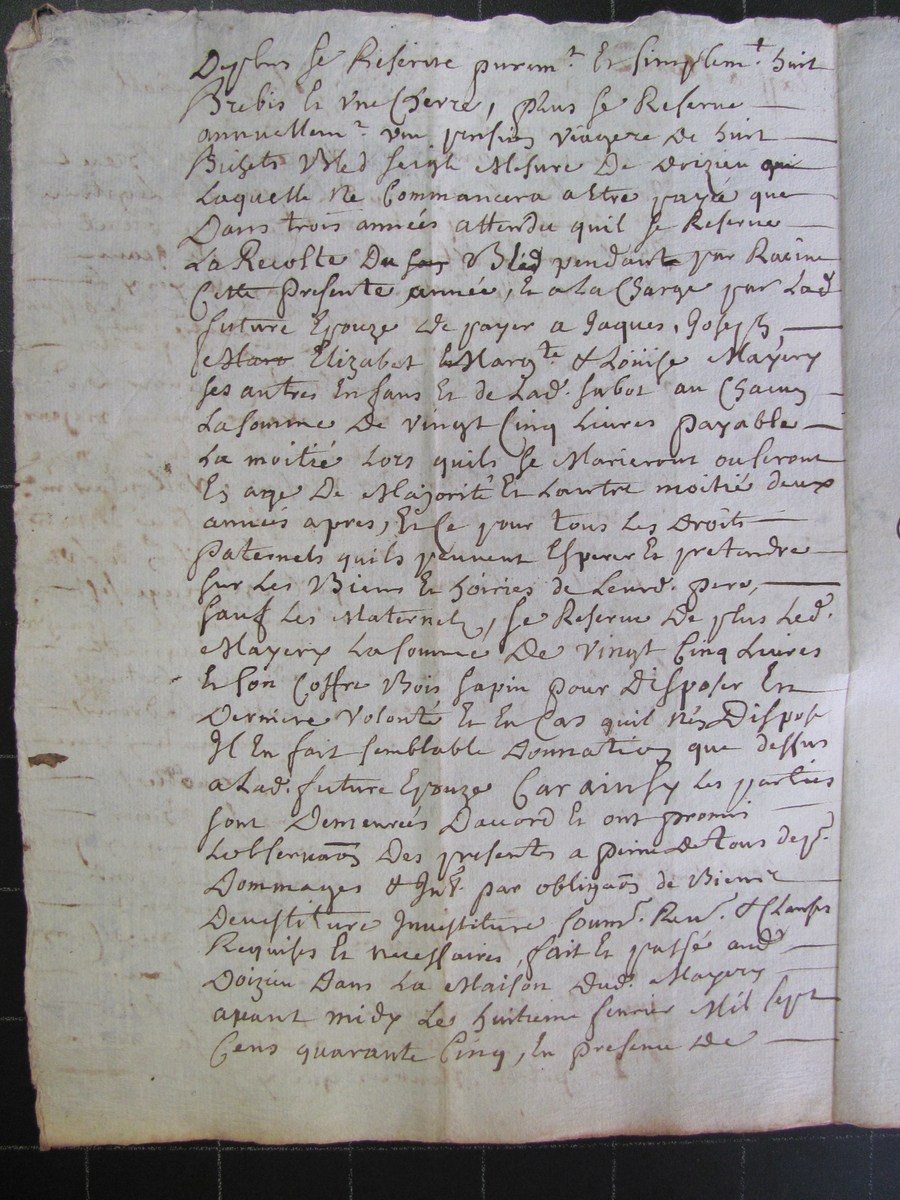 De plus se Reserve purem.t Et simplem.t huit
Brebis Et vne Chevre, plus se Reserve
annuellem.t vne pension viagere De huit
Bichets Bled seigle Mesure De doizieu qui
Laquelle Ne Commancera a Etre payé que
Dans trois années attendu quil se Reserve
La Recolte Du Bled pendant par Racine
Cette presente année, Et a La Charge par Lad.
future Epouze De payer a Jaques, Joseph
Elizabet Marg.te & Loüise Mayery
ses autres Enfans Et de Lad. sabot au Chacun
La somme De vingt Cinq Livres payable
La moitié Lors quils se Marieront ou seront
En age De Majorité Et Lautre moitié deux
années apres, Et Ce pour tous Les Droits
paternels quils peuvent Esperer Et pretendre
sur Les Biens Et hoiries de Leurd. pere,
sauf Les Maternels, se Reserve De plus Led.
Mayery La somme De vingt Cinq Livres
Et son Coffre Bois sapin pour Disposer En
Derniere volonté Et En Cas quil N'en Dispose
Il En fait semblable Donnation que dessus
a Lad. future Epouze Car ainsy Les parties
sont Demeurées Daccord Et ont promis
Lobservaon Des presentes a peine De tous dep.
Dommages & Int. par obligaon de Biens
Devestiture Investiture soum. Ren. & Clauses
Requises Et necessaires, fait Et passé aud.
Doizieu Dans La Maison Dud. Mayery
avant midy Le huitieme fevrier Mil sept
Cens quarante Cinq, En presence De